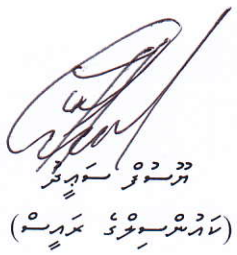 ޔޫސުފް ސަޢީދު
(ކައުންސިލްގެ ރައީސް)